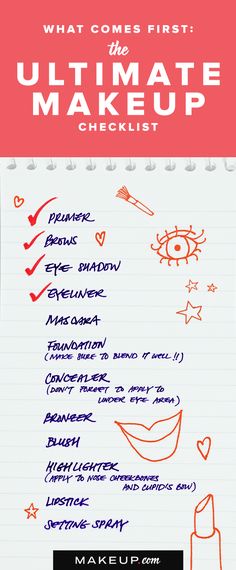 WHAT COMES FIRST:
the
ULTIMATE
MAKEUP
CHECKLIST
PRIMER
BROWS
EYE SHADOW
EYELINER
MASCARA
FOUNDATION
(MAKE SURE TO BLEND IT WELL!!)
CONCEALER
(DON'T FORGET TO APPLY TO
UNDER EYE AREA)
BRONZER
BLUSH
HIGHLIGHTER
(APPLY TO NOSE CHEEKBONES
AND CUPID'S BOW)
LIPSTICK
SETTING SPRAY
MAKEUP.com